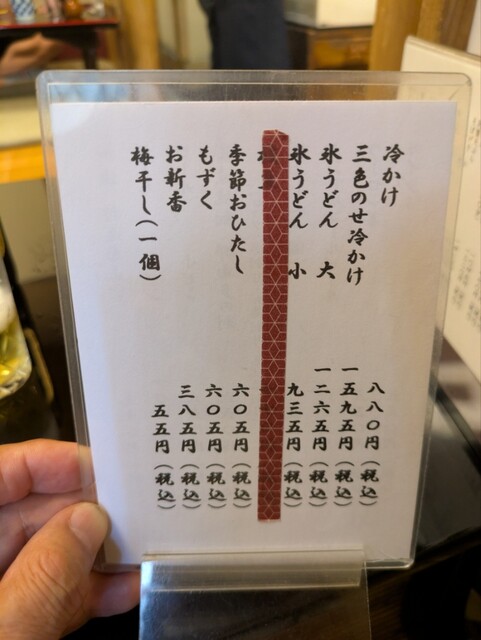 冷かけ 八八〇円(税込)
三色のせ冷かけ 一五九五円(税込)
氷うどん 大 一二六五円(税込)
氷うどん 小 九三五円(税込)
季節おひたし 六〇五円(税込)
もずく 六〇五円(税込)
お新香 三八五円(税込)
梅干し(一個) 五五円(税込)